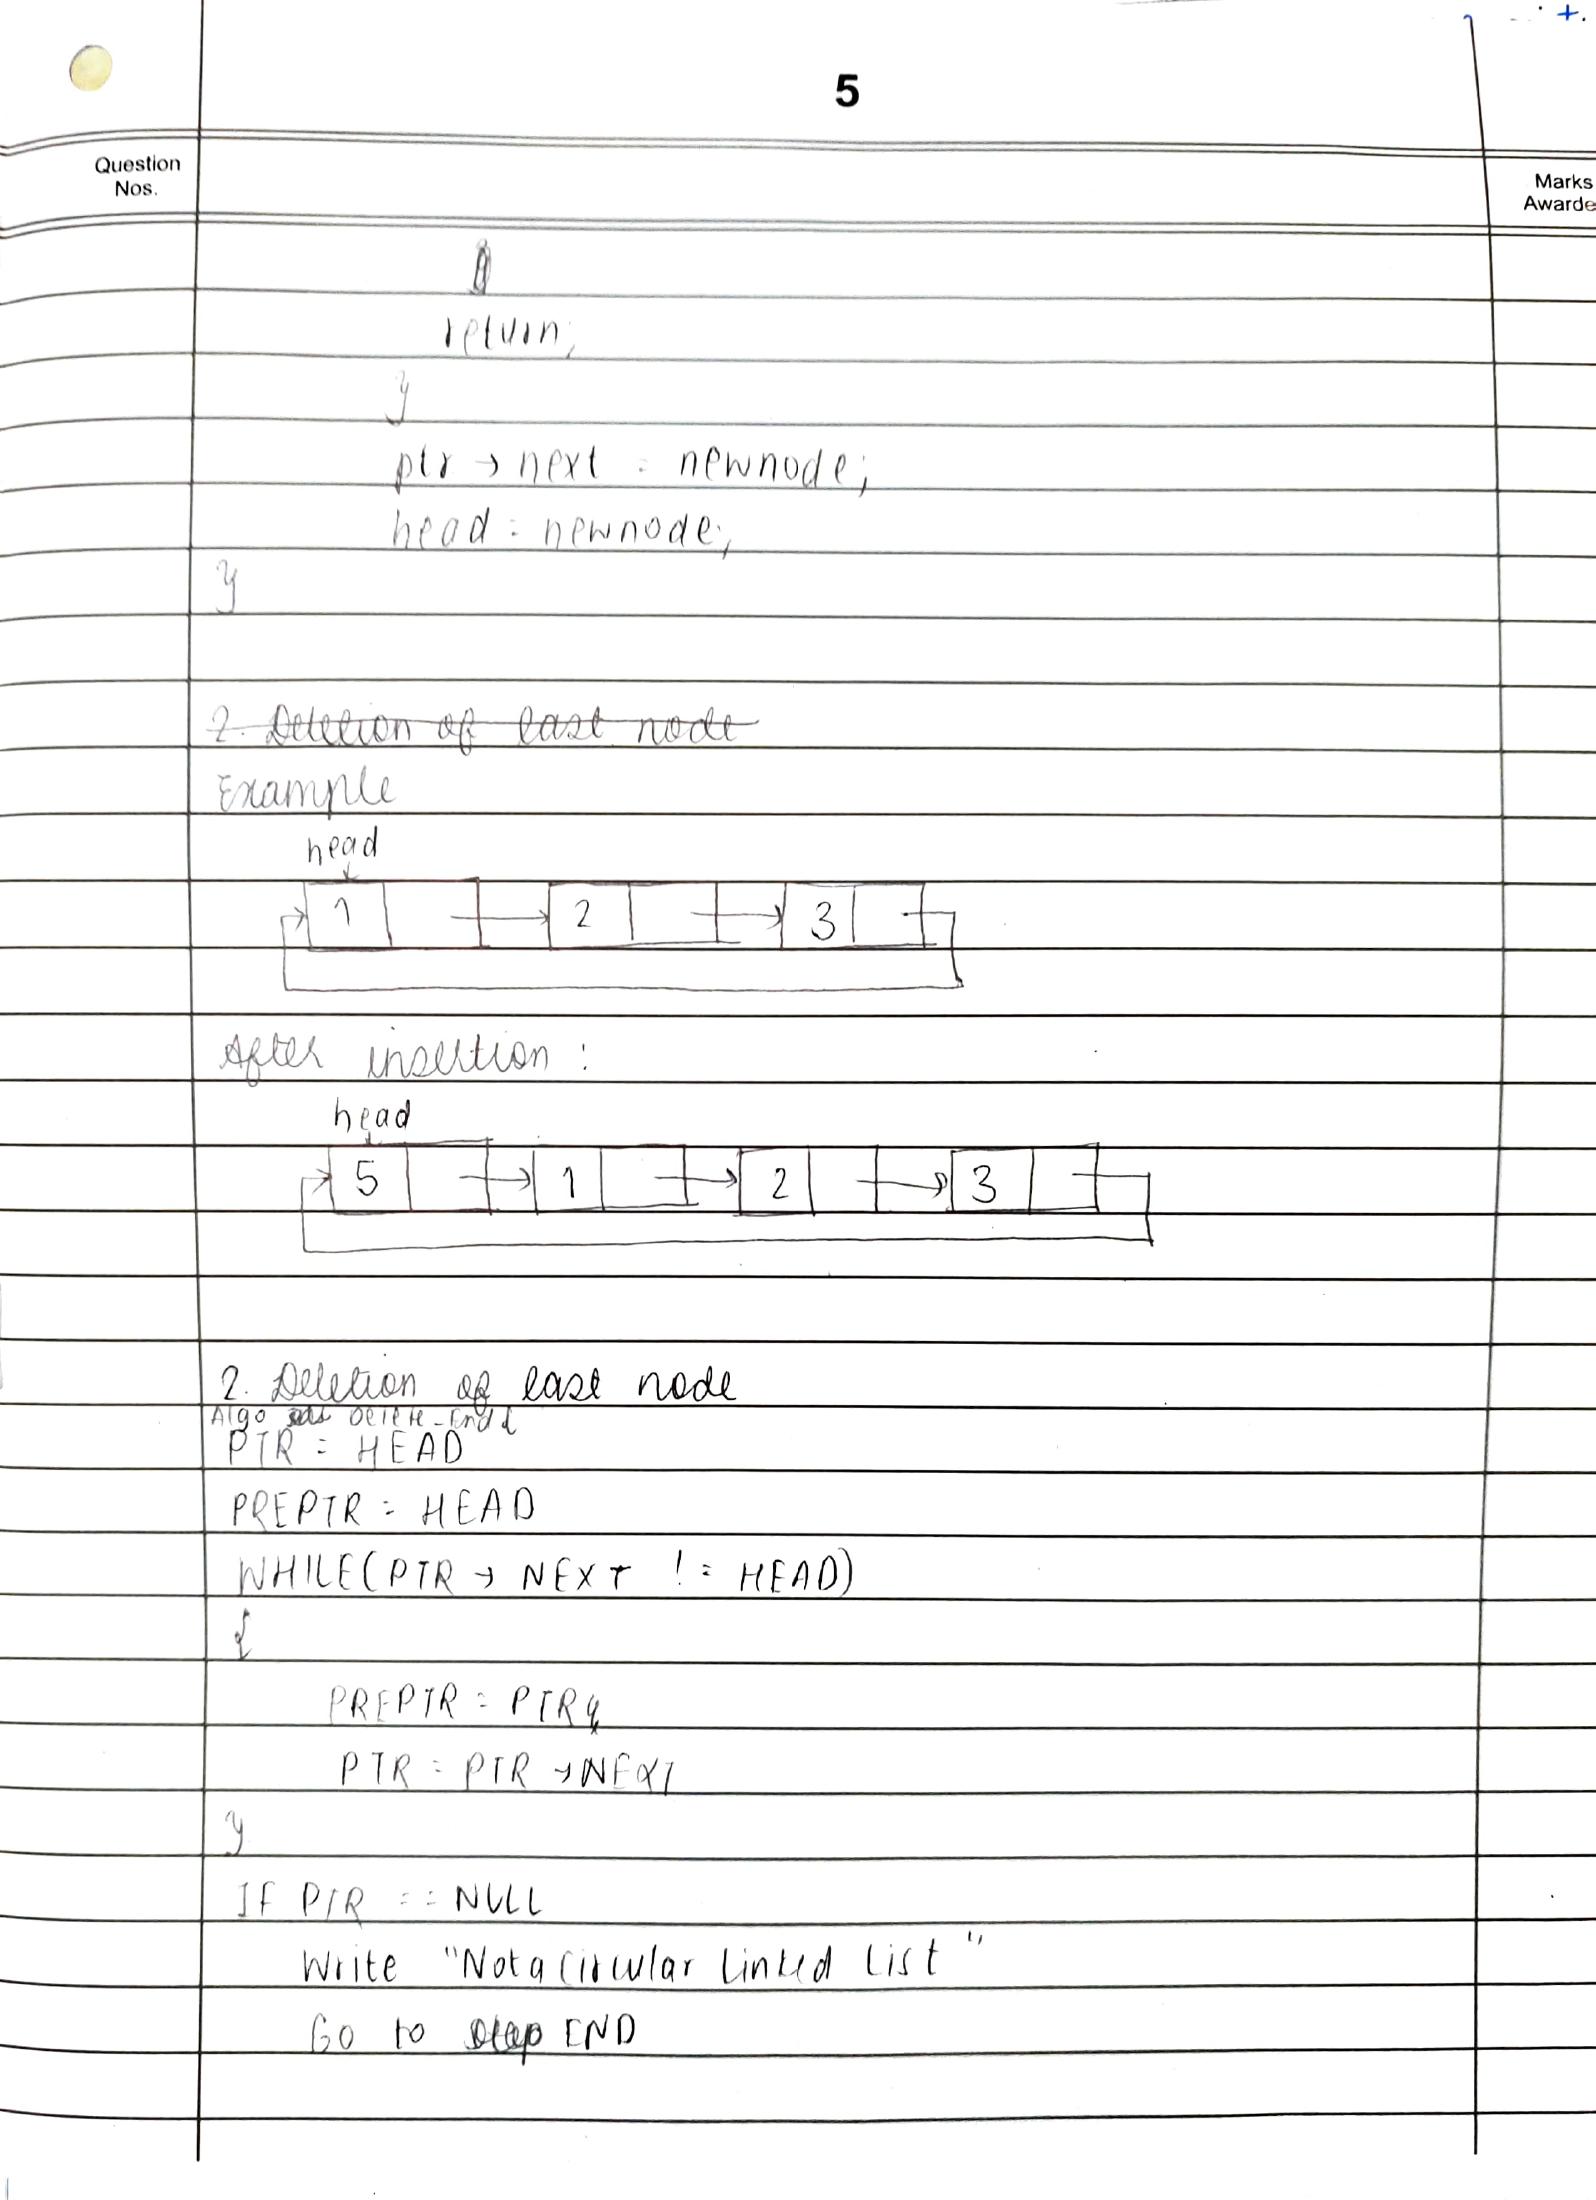 5
Question
Nos.
Marks
Awarde
return;
}
ptr → next = newnode;
head = newnode;
}
2. Deletion of last node
Example
head
1 2 3
After insertion :
head
5 1 2 3
2. Deletion of last node
Algo Delete_End {
PTR = HEAD
PREPTR = HEAD
WHILE(PTR → NEXT != HEAD)
{
PREPTR = PTR
PTR = PTR → NEXT
}
IF PTR == NULL
Write "Not a Circular Linked List"
Go to step END